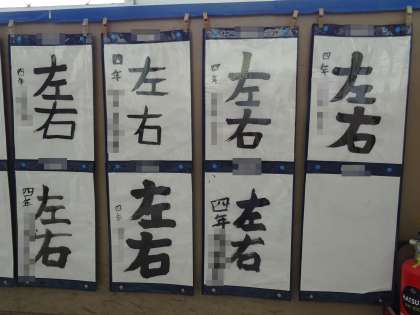 左右
四年
左右
四年
左右
四年
左右
四年
左右
四年
左右
四年
左右
四年